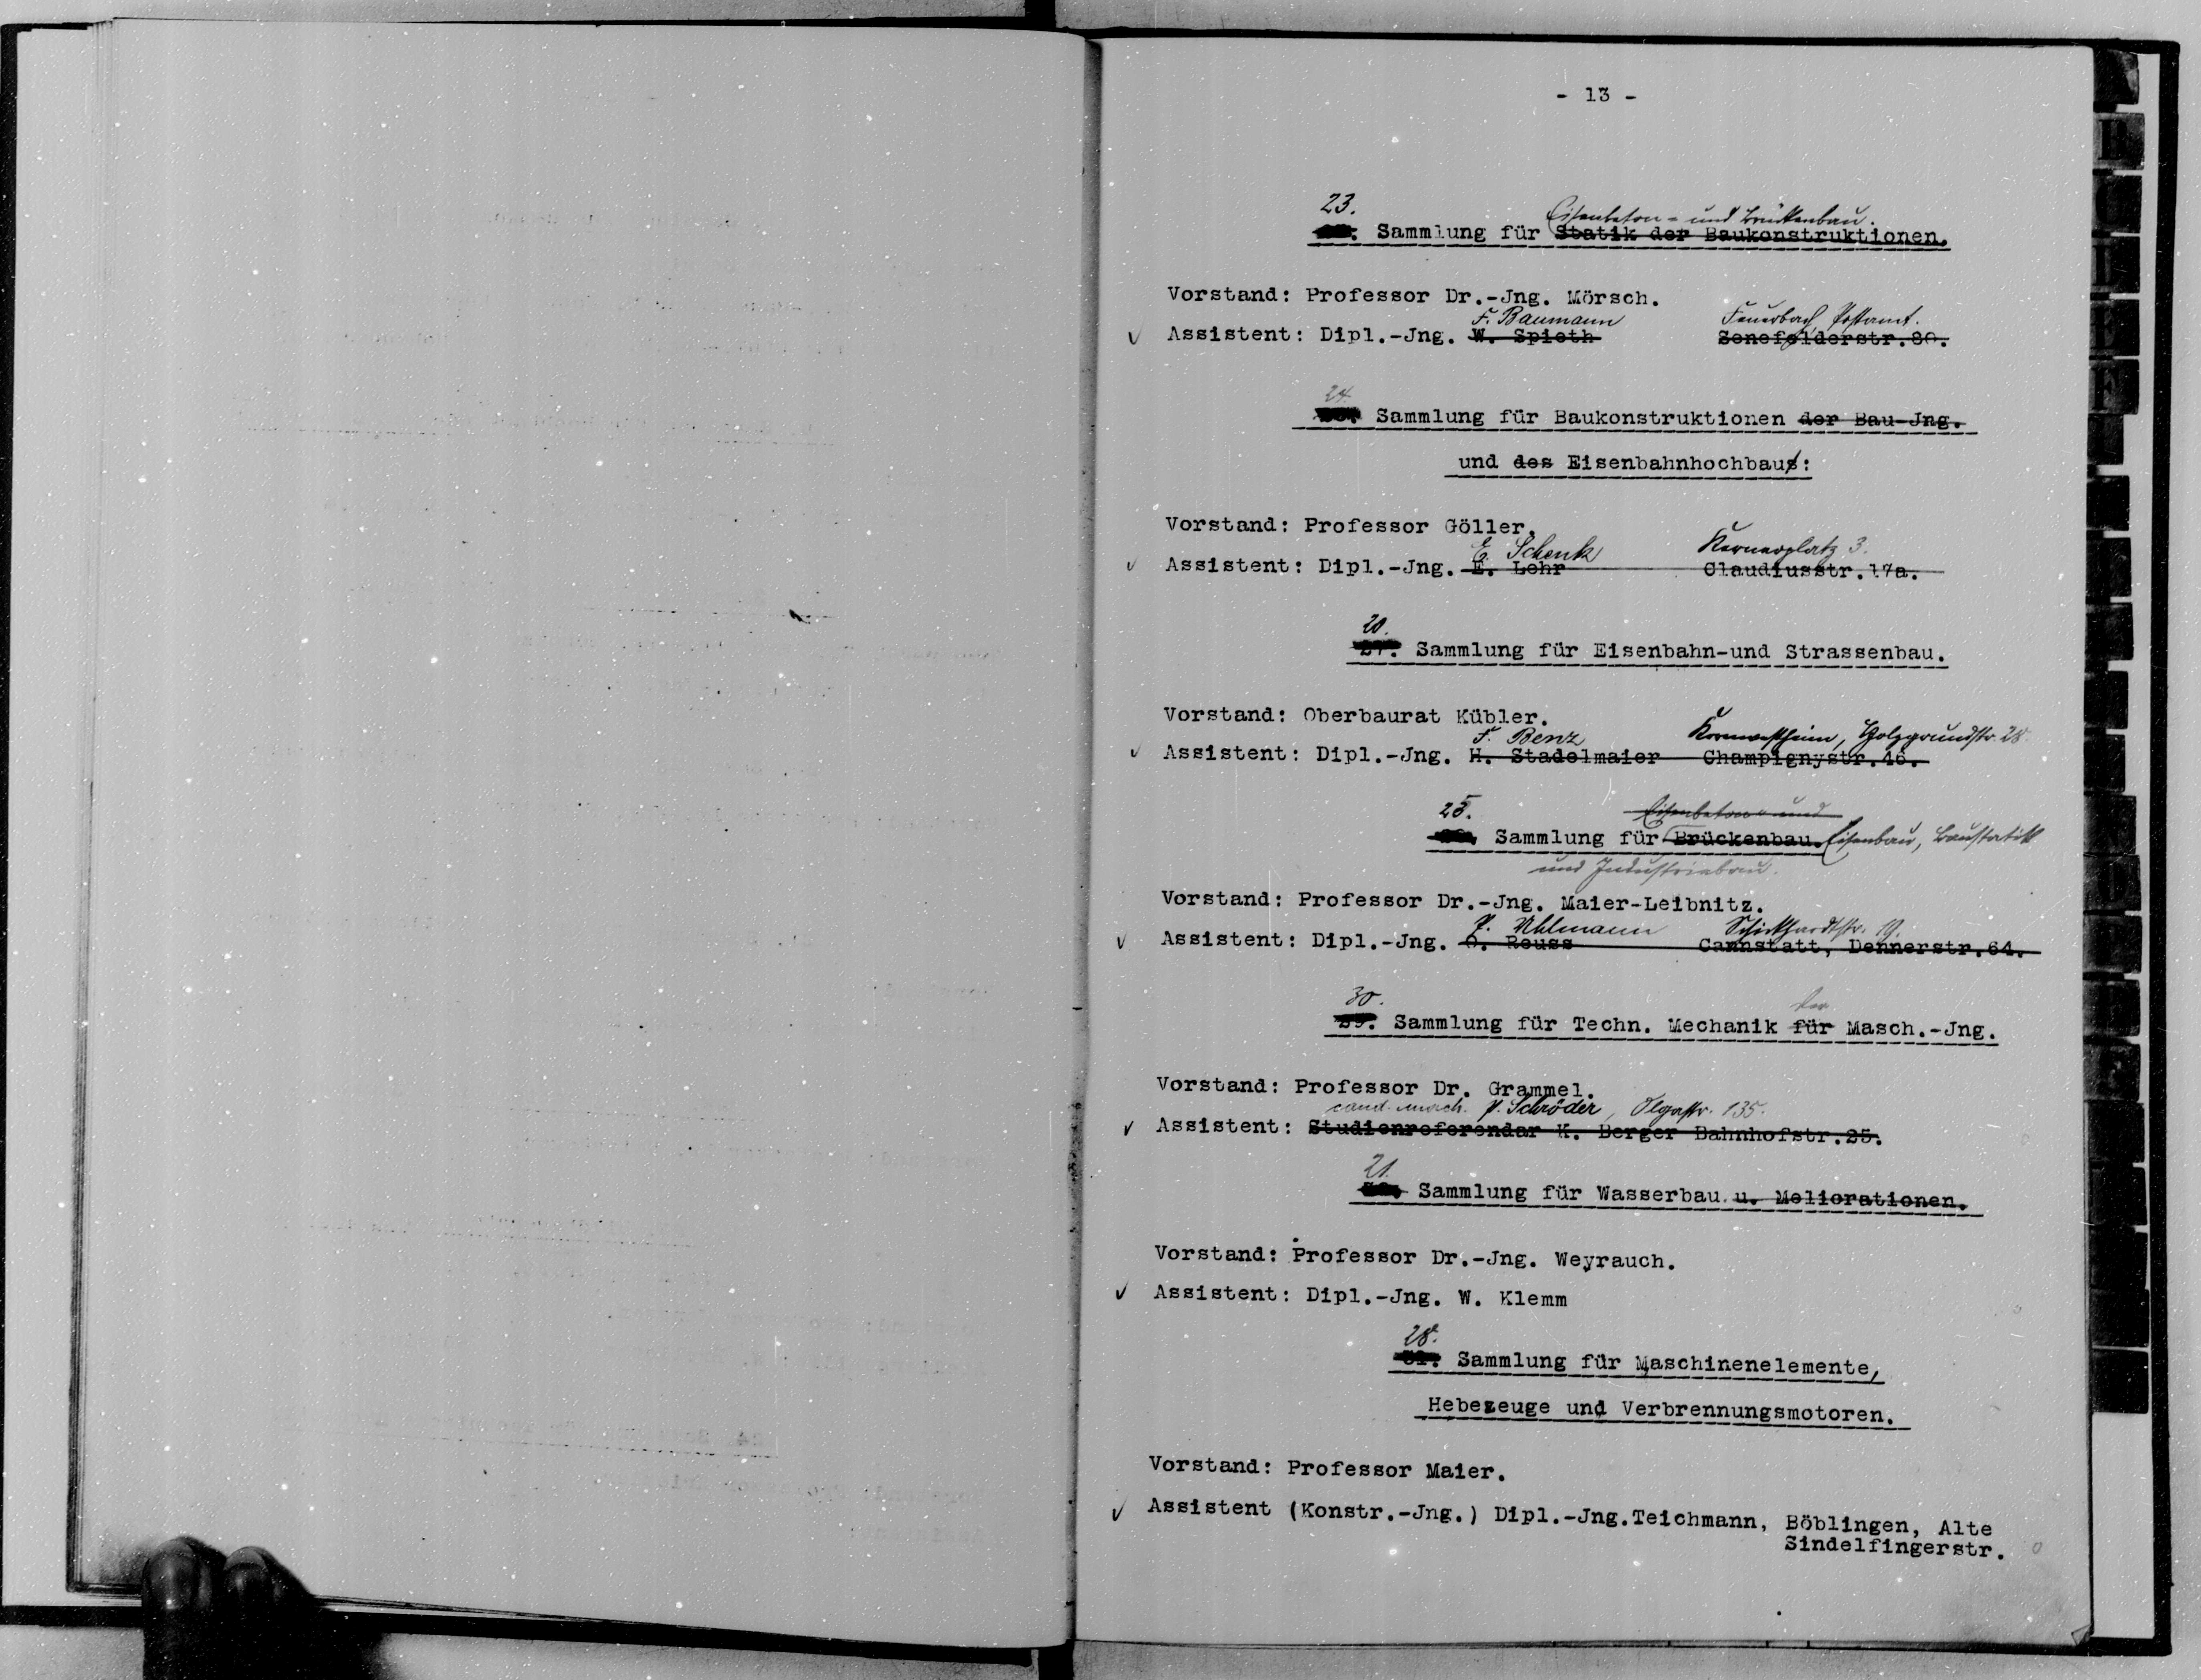 - 13 -
23.
Eisenbeton- und Brückenbau.
Sammlung für Statik der Baukonstruktionen.
Vorstand: Professor Dr.-Jng. Mörsch.
F. Baumann Feuerbach, Postamt.
Assistent: Dipl.-Jng. W. Spieth Senefelderstr.80.
24.
Sammlung für Baukonstruktionen der Bau-Jng.
und des Eisenbahnhochbaus:
Vorstand: Professor Göller.
E. Schenk Kernerplatz 3.
Assistent: Dipl.-Jng. E. Lohr Claudiusstr.17a.
20.
27. Sammlung für Eisenbahn-und Strassenbau.
Vorstand: Oberbaurat Kübler.
F. Benz Kornwestheim, Holzgrundstr. 28.
Assistent: Dipl.-Jng. H. Stadelmaier Champignystr.46.
25. Eisenbeton- und
Sammlung für Brückenbau. Eisenbau, Baustatik
und Industriebau.
Vorstand: Professor Dr.-Jng. Maier-Leibnitz.
Uhlmann Schickhardtstr. 19.
Assistent: Dipl.-Jng. O. Reuss Cannstatt, Dennerstr.64.
30. der
29. Sammlung für Techn. Mechanik für Masch.-Jng.
Vorstand: Professor Dr. Grammel.
cand. mach. P. Schröder, Olgastr. 135.
Assistent: Studienreferendar K. Berger Bahnhofstr.25.
21.
Sammlung für Wasserbau u. Meliorationen.
Vorstand: Professor Dr.-Jng. Weyrauch.
Assistent: Dipl.-Jng. W. Klemm
28.
31. Sammlung für Maschinenelemente,
Hebezeuge und Verbrennungsmotoren.
Vorstand: Professor Maier.
Assistent (Konstr.-Jng.) Dipl.-Jng.Teichmann, Böblingen, Alte
Sindelfingerstr.